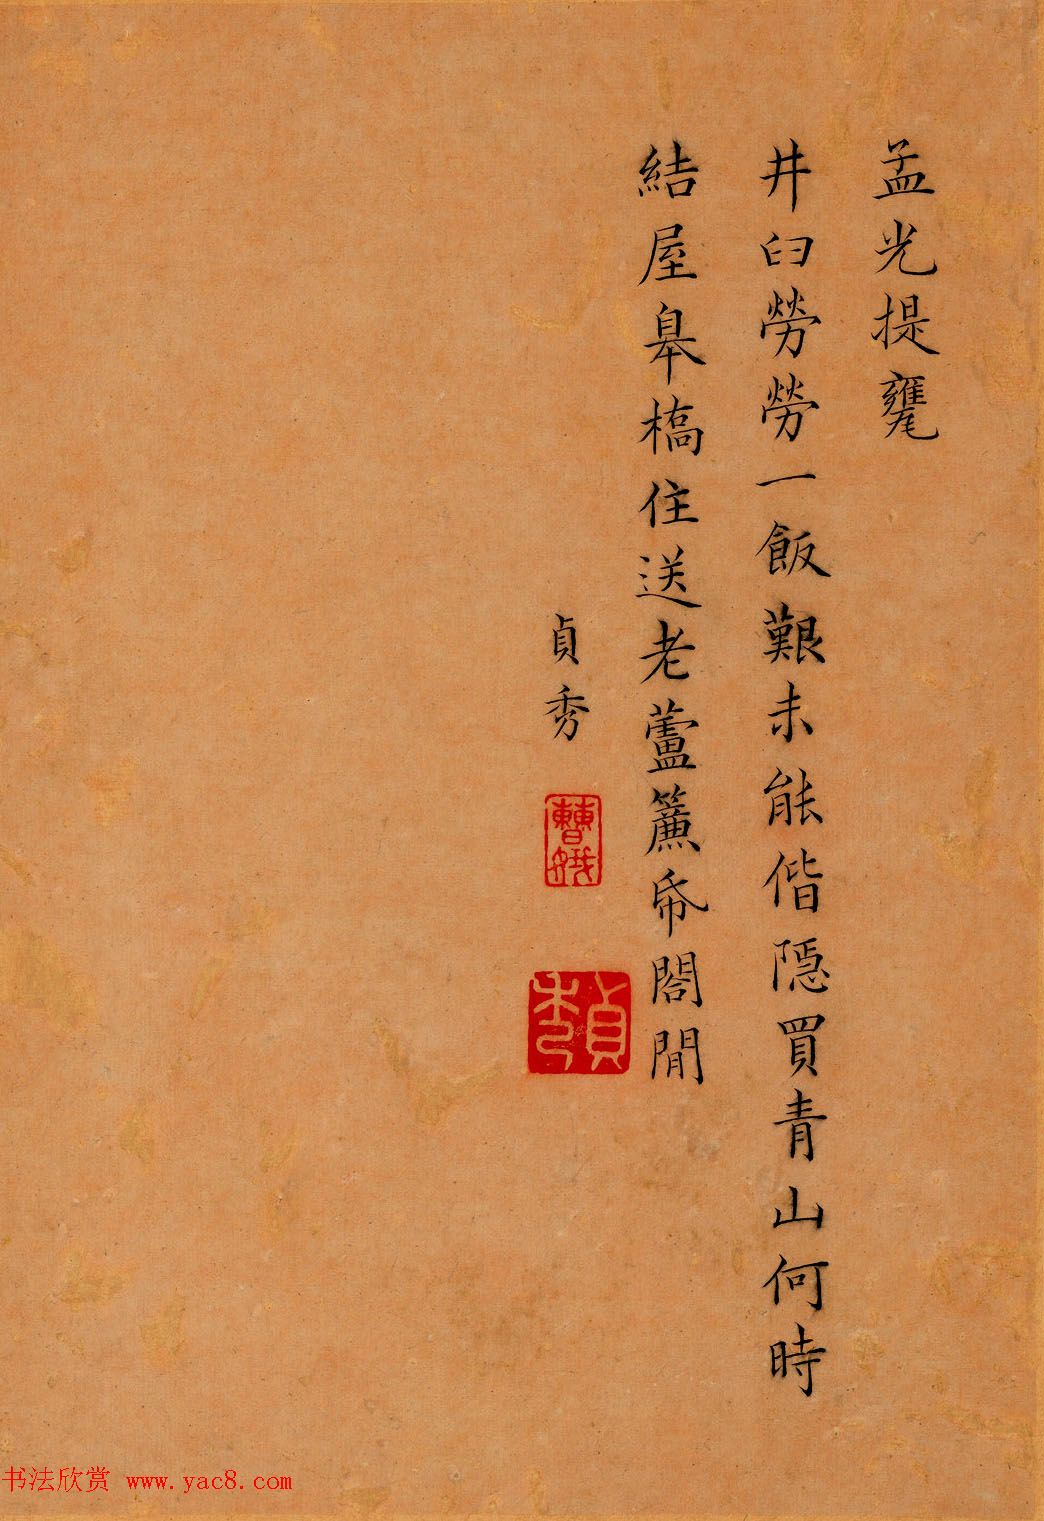 孟光提甕
井臼勞勞一飯艱未能偕隱買青山何時
結屋皋橋住送老蘆簾帋閣間
貞秀
曹娥
貞秀
书法欣赏 www.yac8.com